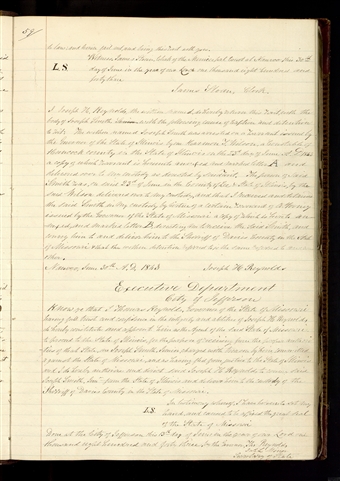 59
to him, and hereof fail not and bring this writ with you.
Witness, James Sloan Clerk of the Municipal Court at Nauvoo this 30th
L.S. day of June in the year of our Lord one thousand eight hundred and
forty three.
James Sloan Clerk.
I Joseph H. Reynolds, the within named, do hereby return this writ with the
body of Joseph Smith, with the following cause of
to wit. The within named Joseph Smith was arrested on a warrant issued by
the Governor of the State of Illinois by one Harmon T. Wilson, a constable of
Hancock county in the State of Illinois on the 23d day of June A.D. 1843
a copy of which warrant is hereunto annexed and marked letter B. and
delivered over to my custody as directed by said writ. The person of said
Smith was, on said 23d of June in the County of Lee & State of Illinois, by the
said Wilson delivered over to my custody, and that I received and detained
the said Smith in my custody by virtue of a certain warrant of attorney
issued by the Governor of the State of Missouri a copy of which is hereto
annexed, and marked letter B. directing me to receive the said Smith, and
convey him to and deliver him to the Sheriff of Daviess County in the State
of Missouri & that the within detention referred to is the same referred to and none
other.
Nauvoo, June 30th A.D. 1843. Joseph H. Reynolds
Executive Department
City of Jefferson
Know ye that I Thomas Reynolds, Governor of the State of Missouri
having full trust and confidence in the integrity and abilities of Joseph H. Reynolds,
do hereby constitute and appoint him as the agent of the said State of Missouri
to proceed to the State of Illinois for the purpose of receiving from the proper
of that State, one Joseph Smith Junior, charged with treason by him committed
against the State of Missouri, and as having fled from justice to the State of Illinois
and I do hereby authorise and direct said Joseph H. Reynolds to convey said
Joseph Smith, Junr from the State of Illinois and deliver him to the custody of the
Sheriff of Daviess County in the State of Missouri.
In testimony whereof I have hereunto set my
hand, and caused to be affixed the great seal
L.S. of the State of Missouri
Done at the City of Jefferson this 13th day of June in the year of our Lord one
thousand eight hundred and forty three. By the Governor, Th. Reynolds
Secretary of State